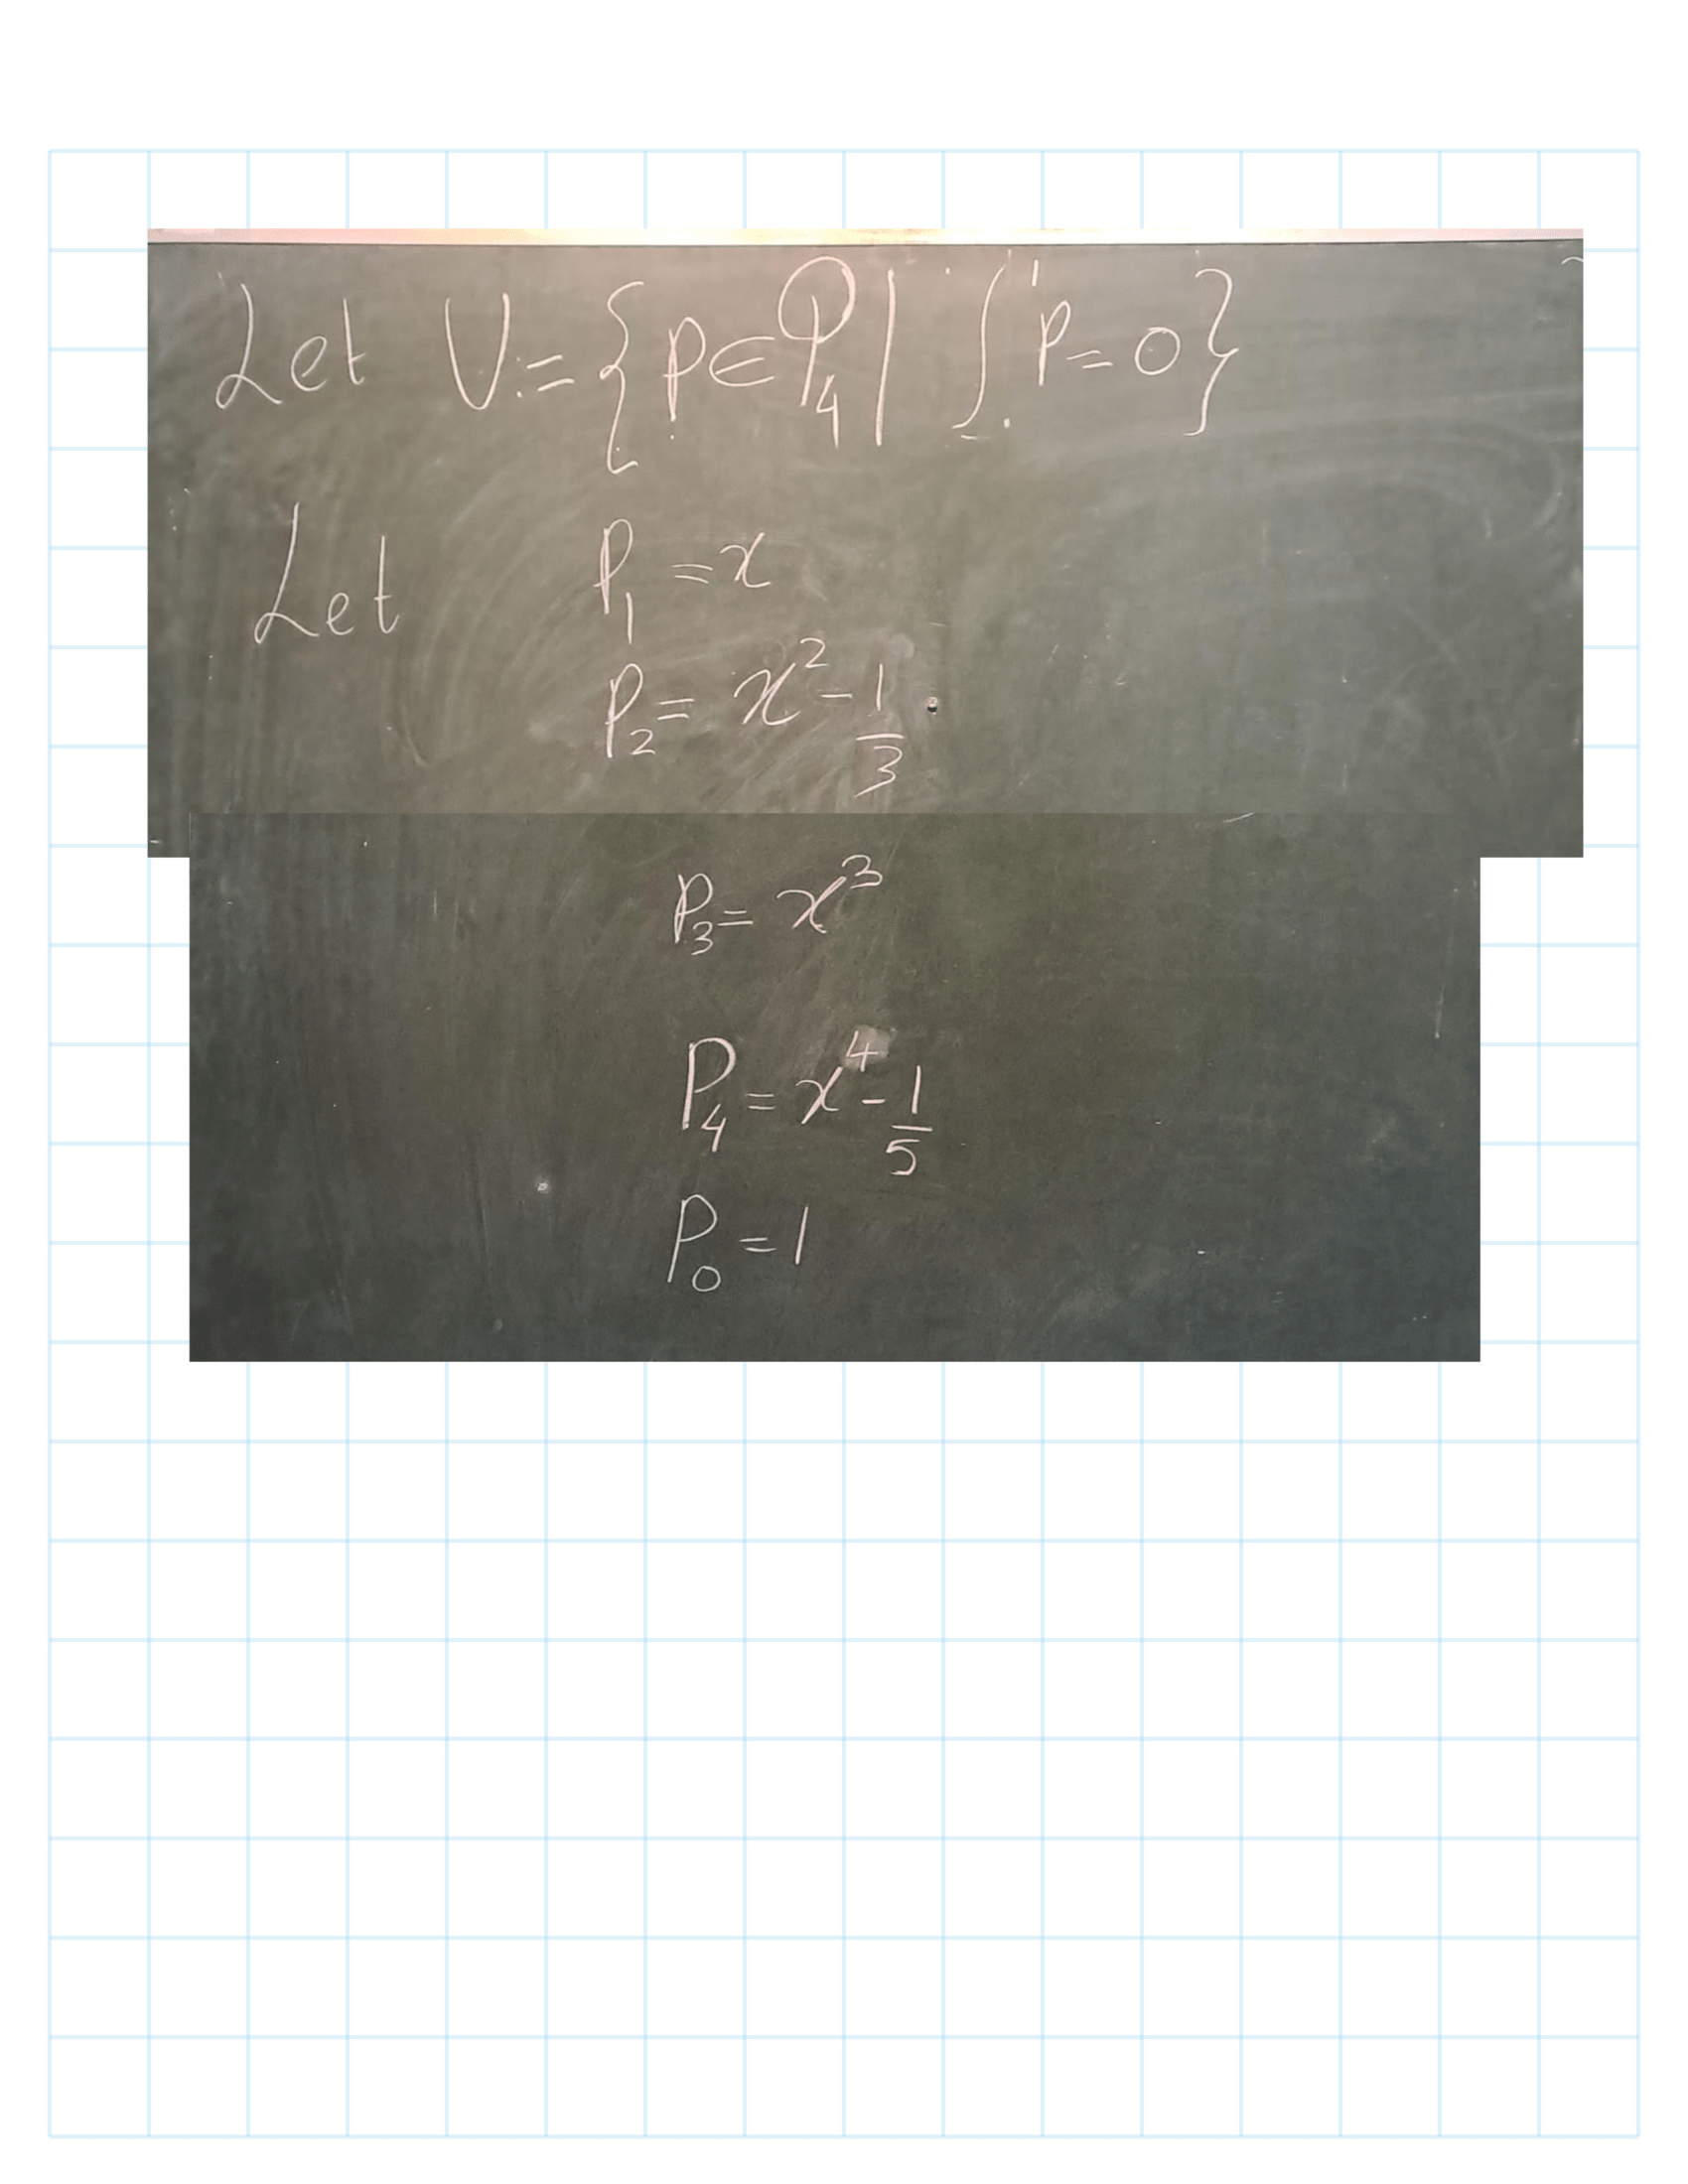 Let V:= {p∈P₄ | ∫₋.¹ p=0}
Let P₁ = x
P₂ = x² - 1/3
P₃ = x³
P₄ = x⁴ - 1/5
P₀ = 1